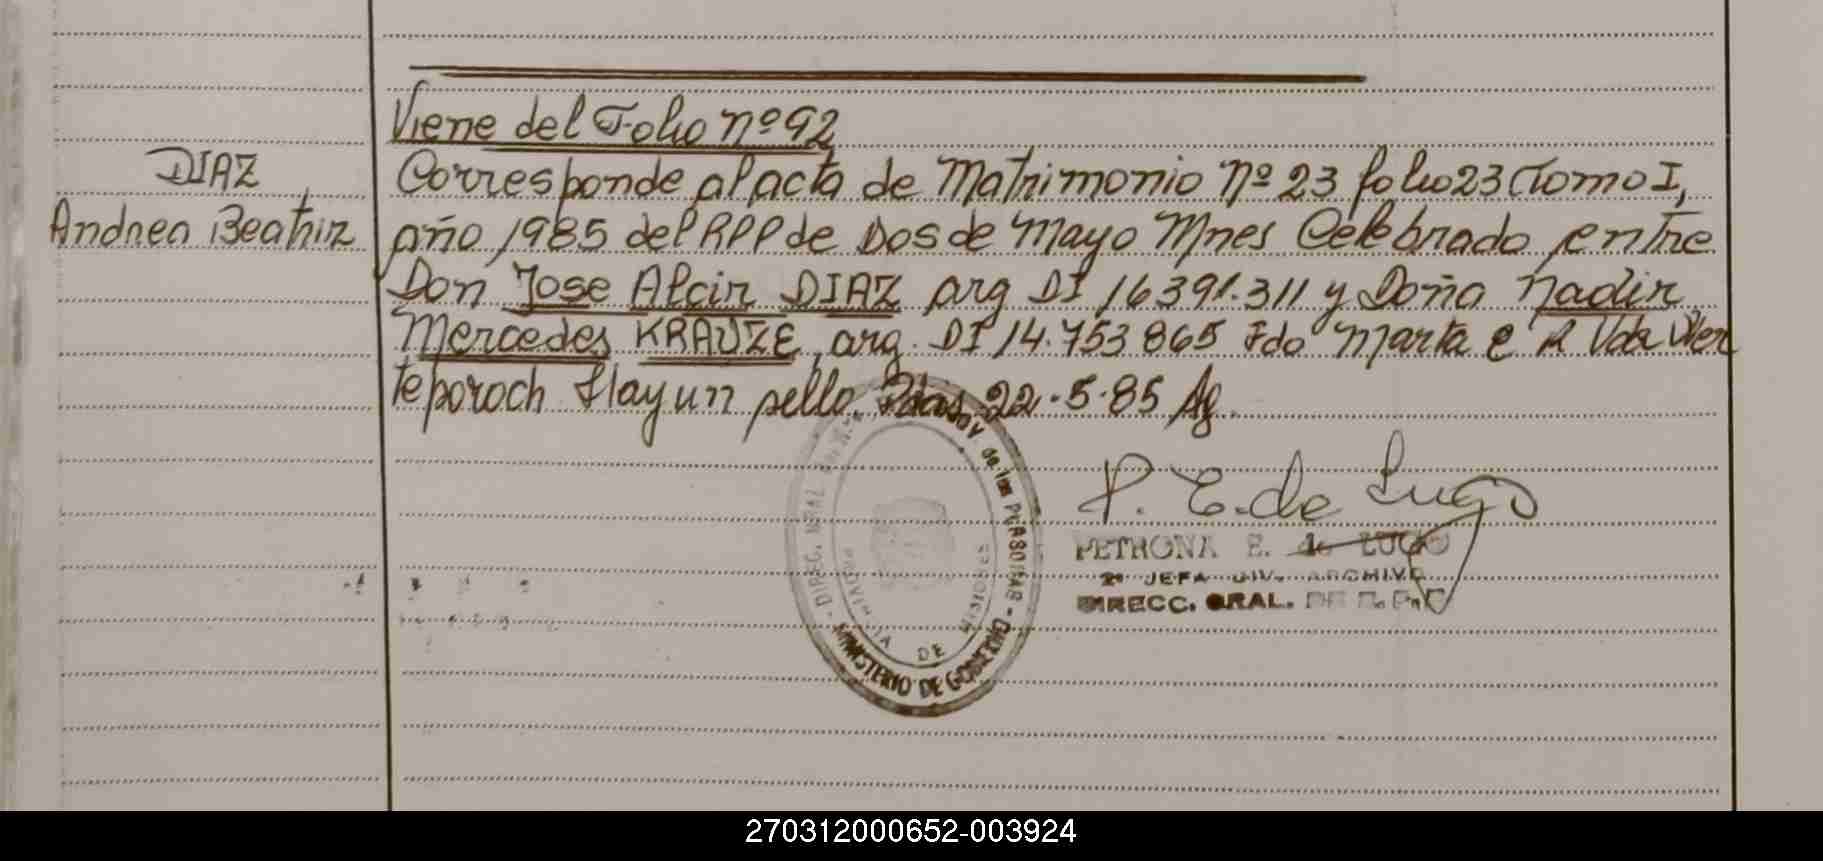 Viene del Folio nº 92
DIAZ
Andrea Beatriz
Corresponde al acta de Matrimonio nº 23 folio 23 Tomo I,
año 1985 del RPP de Dos de Mayo Mnes Celebrado entre
Don Jose Alcir DIAZ arg DI 16391.311 y Doña Nadir
Mercedes KRAUZE, arg. DI 14.753 865 Fdo Marta e R Vda
Hay un sello. Pdas, 22.5.85
P. E. de Lugo
PETRONA E. de LUGO
2ª JEFA DIV. ARCHIVO
DIRECC. GRAL. DE R. P. P.
de las PERSONAS
MINISTERIO DE GOBIERNO
PROVINCIA DE MISIONES
270312000652-003924